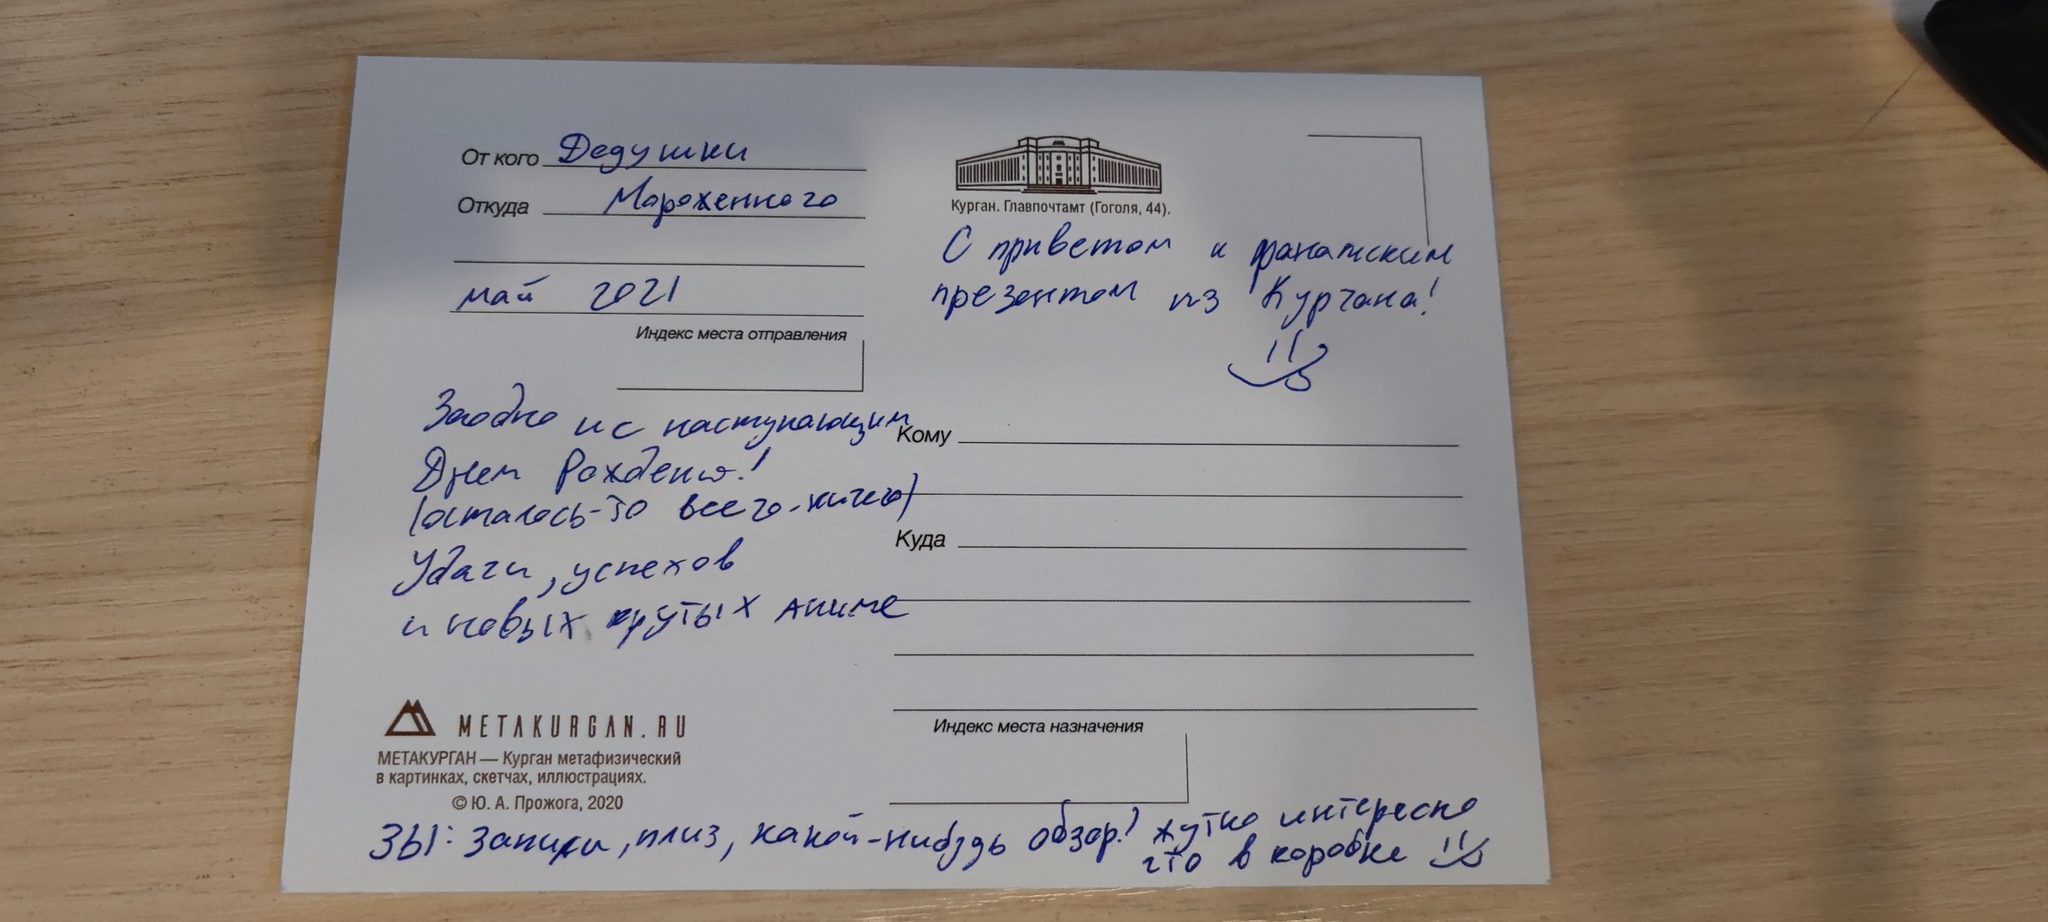 От кого Дедушки
Откуда Мороженного
май 2021
Индекс места отправления
Курган. Главпочтамт (Гоголя, 44).
С приветом и фанатским
презентом из Курчана!
Заодно и с наступающим
Днем Рождения!
(осталось-то всего-ничего)
Удачи, успехов
и новых крутых аниме
Кому
Куда
Индекс места назначения
METAKURGAN.RU
МЕТАКУРГАН — Курган метафизический
в картинках, скетчах, иллюстрациях.
© Ю. А. Прожога, 2020
ЗЫ: Запили, плиз, какой-нибудь обзор! Жутко интересно
что в коробке